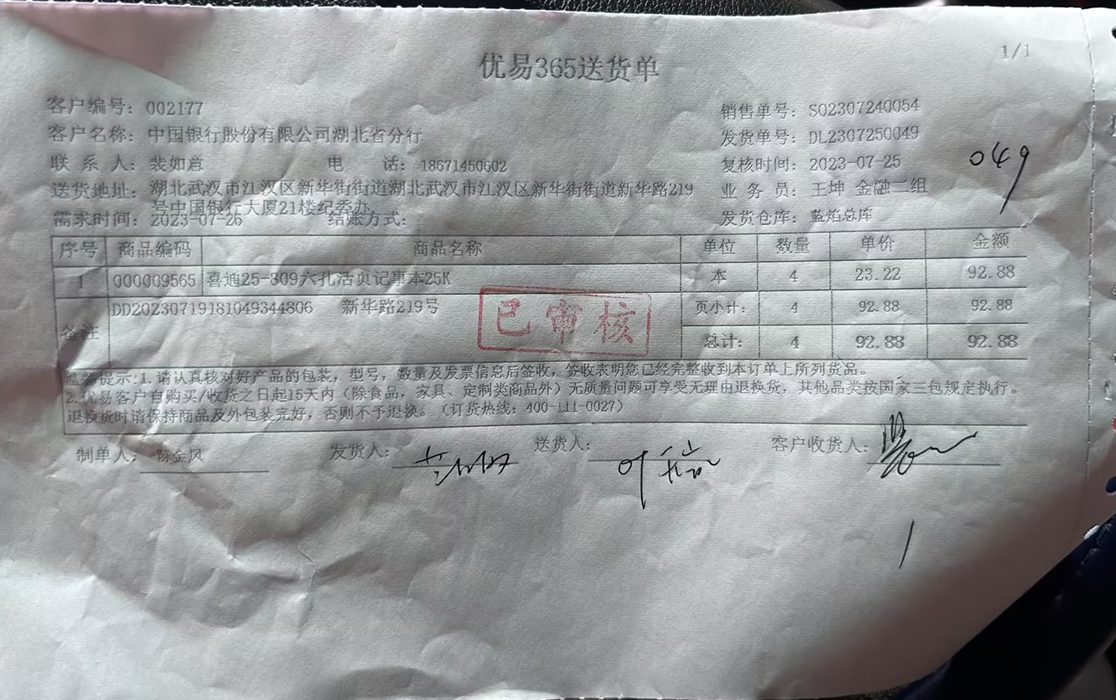 1/1
优易365送货单
客户编号: 002177
销售单号: SO2307240054
客户名称: 中国银行股份有限公司湖北省分行
发货单号: DL2307250049
联 系 人: 裴如意 电 话: 18671450602
复核时间: 2023-07-25
049
送货地址: 湖北武汉市江汉区新华街街道湖北武汉市江汉区新华街街道新华路219
号中国银行大厦21楼纪委办
业 务 员: 王坤 金融二组
需求时间: 2023-07-26 结账方式:
发货仓库: 蓝焰总库
序号 商品编码 商品名称 单位 数量 单价 金额
1 000009565 喜通25-809六孔活页记事本25K 本 4 23.22 92.88
备注 DD20230719181049344806 新华路219号 页小计: 4 92.88 92.88
已审核
总计: 4 92.88 92.88
温馨提示:1.请认真核对好产品的包装，型号，数量及发票信息后签收，签收表明您已经完整收到本订单上所列货品。
2.优易客户自购买/收货之日起15天内（除食品，家具、定制类商品外）无质量问题可享受无理由退换货，其他品类按国家三包规定执行。
退换货时请保持商品及外包装完好，否则不予退换。（订货热线: 400-111-0027）
制单人: 杨金凤 发货人: 送货人: 客户收货人: